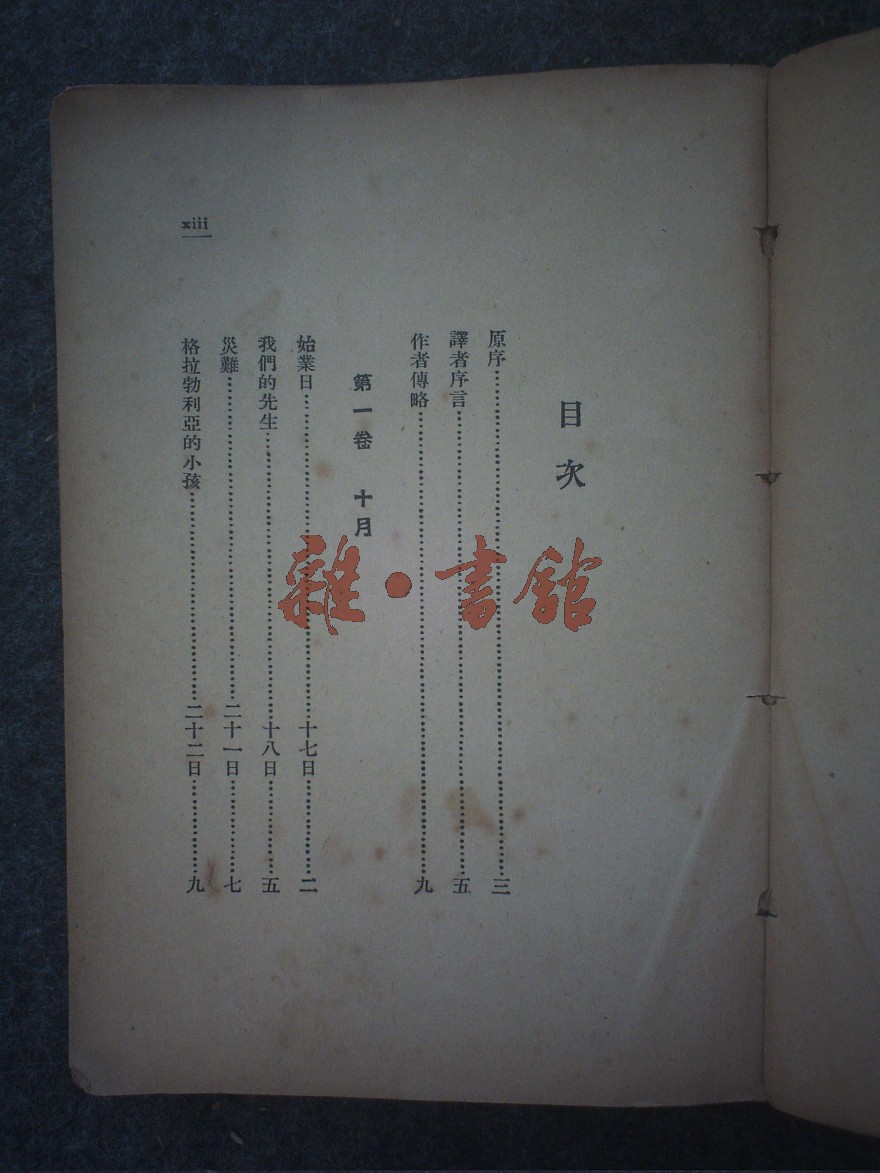 目次
原序……三
譯者序言……五
作者傳略……九
第一卷 十月
始業日……十七日……二
我們的先生……十八日……五
災難……二十一日……七
格拉勃利亞的小孩……二十二日……九
xiii
雜·書館